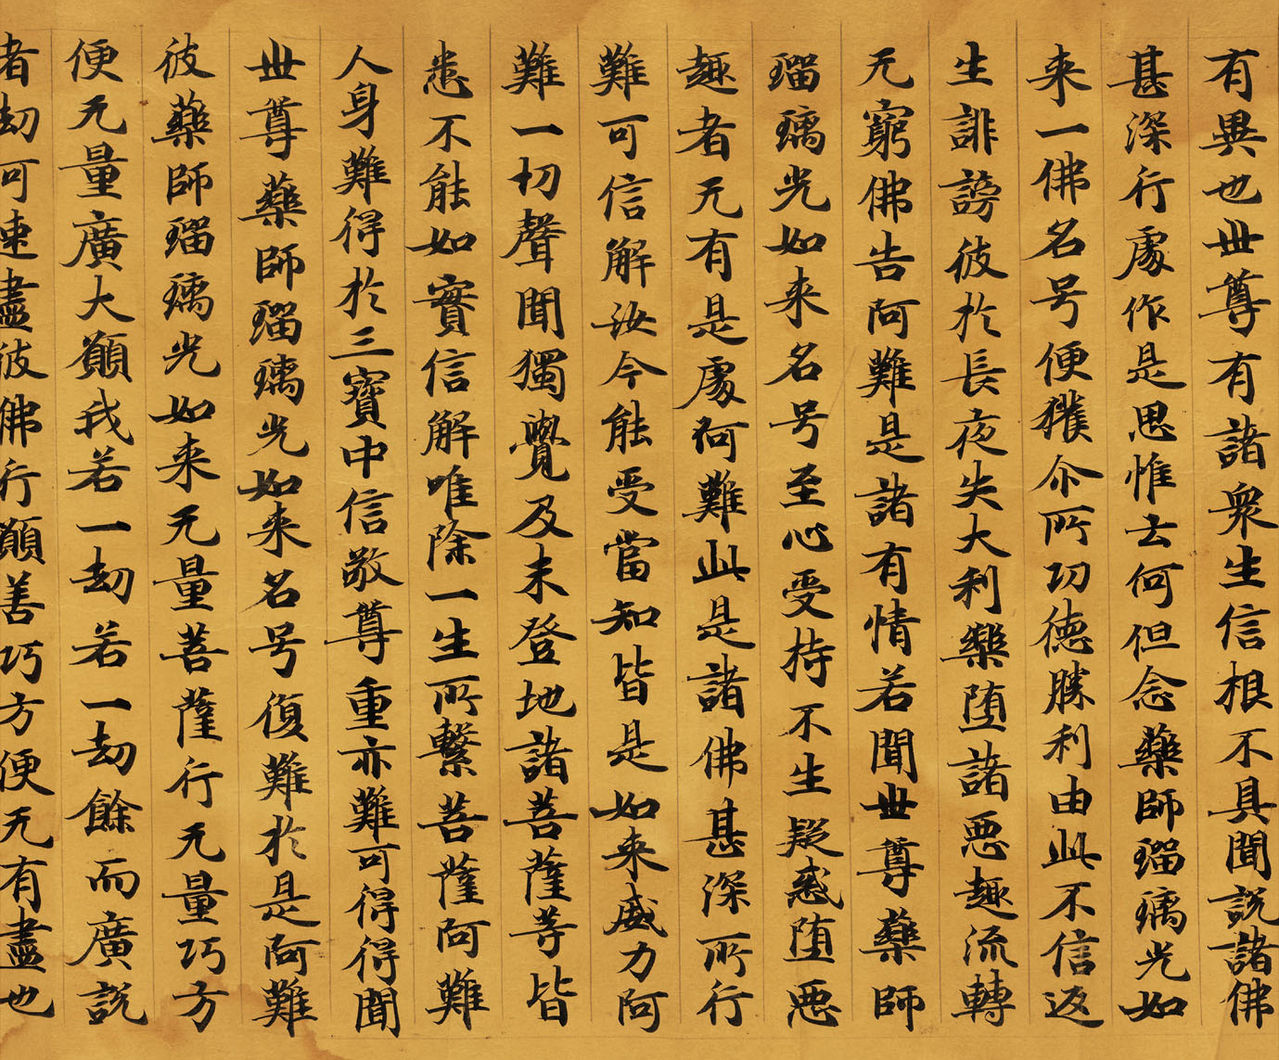 有異也世尊有諸衆生信根不具聞說諸佛
甚深行處作是思惟云何但念藥師瑠璃光如
来一佛名号便獲尒所功德勝利由此不信返
生誹謗彼於長夜失大利樂堕諸惡趣流轉
无窮佛告阿難是諸有情若聞世尊藥師
瑠璃光如来名号至心受持不生疑惑堕惡
趣者无有是處阿難此是諸佛甚深所行
難可信解汝今能受當知皆是如来威力阿
難一切聲聞獨覺及未登地諸菩薩等皆
悉不能如實信解唯除一生所繫菩薩阿難
人身難得於三寶中信敬尊重亦難可得得聞
世尊藥師瑠璃光如来名号復難於是阿難
彼藥師瑠璃光如来无量菩薩行无量巧方
便无量廣大願我若一劫若一劫餘而廣說
者劫可速盡彼佛行願善巧方便无有盡也